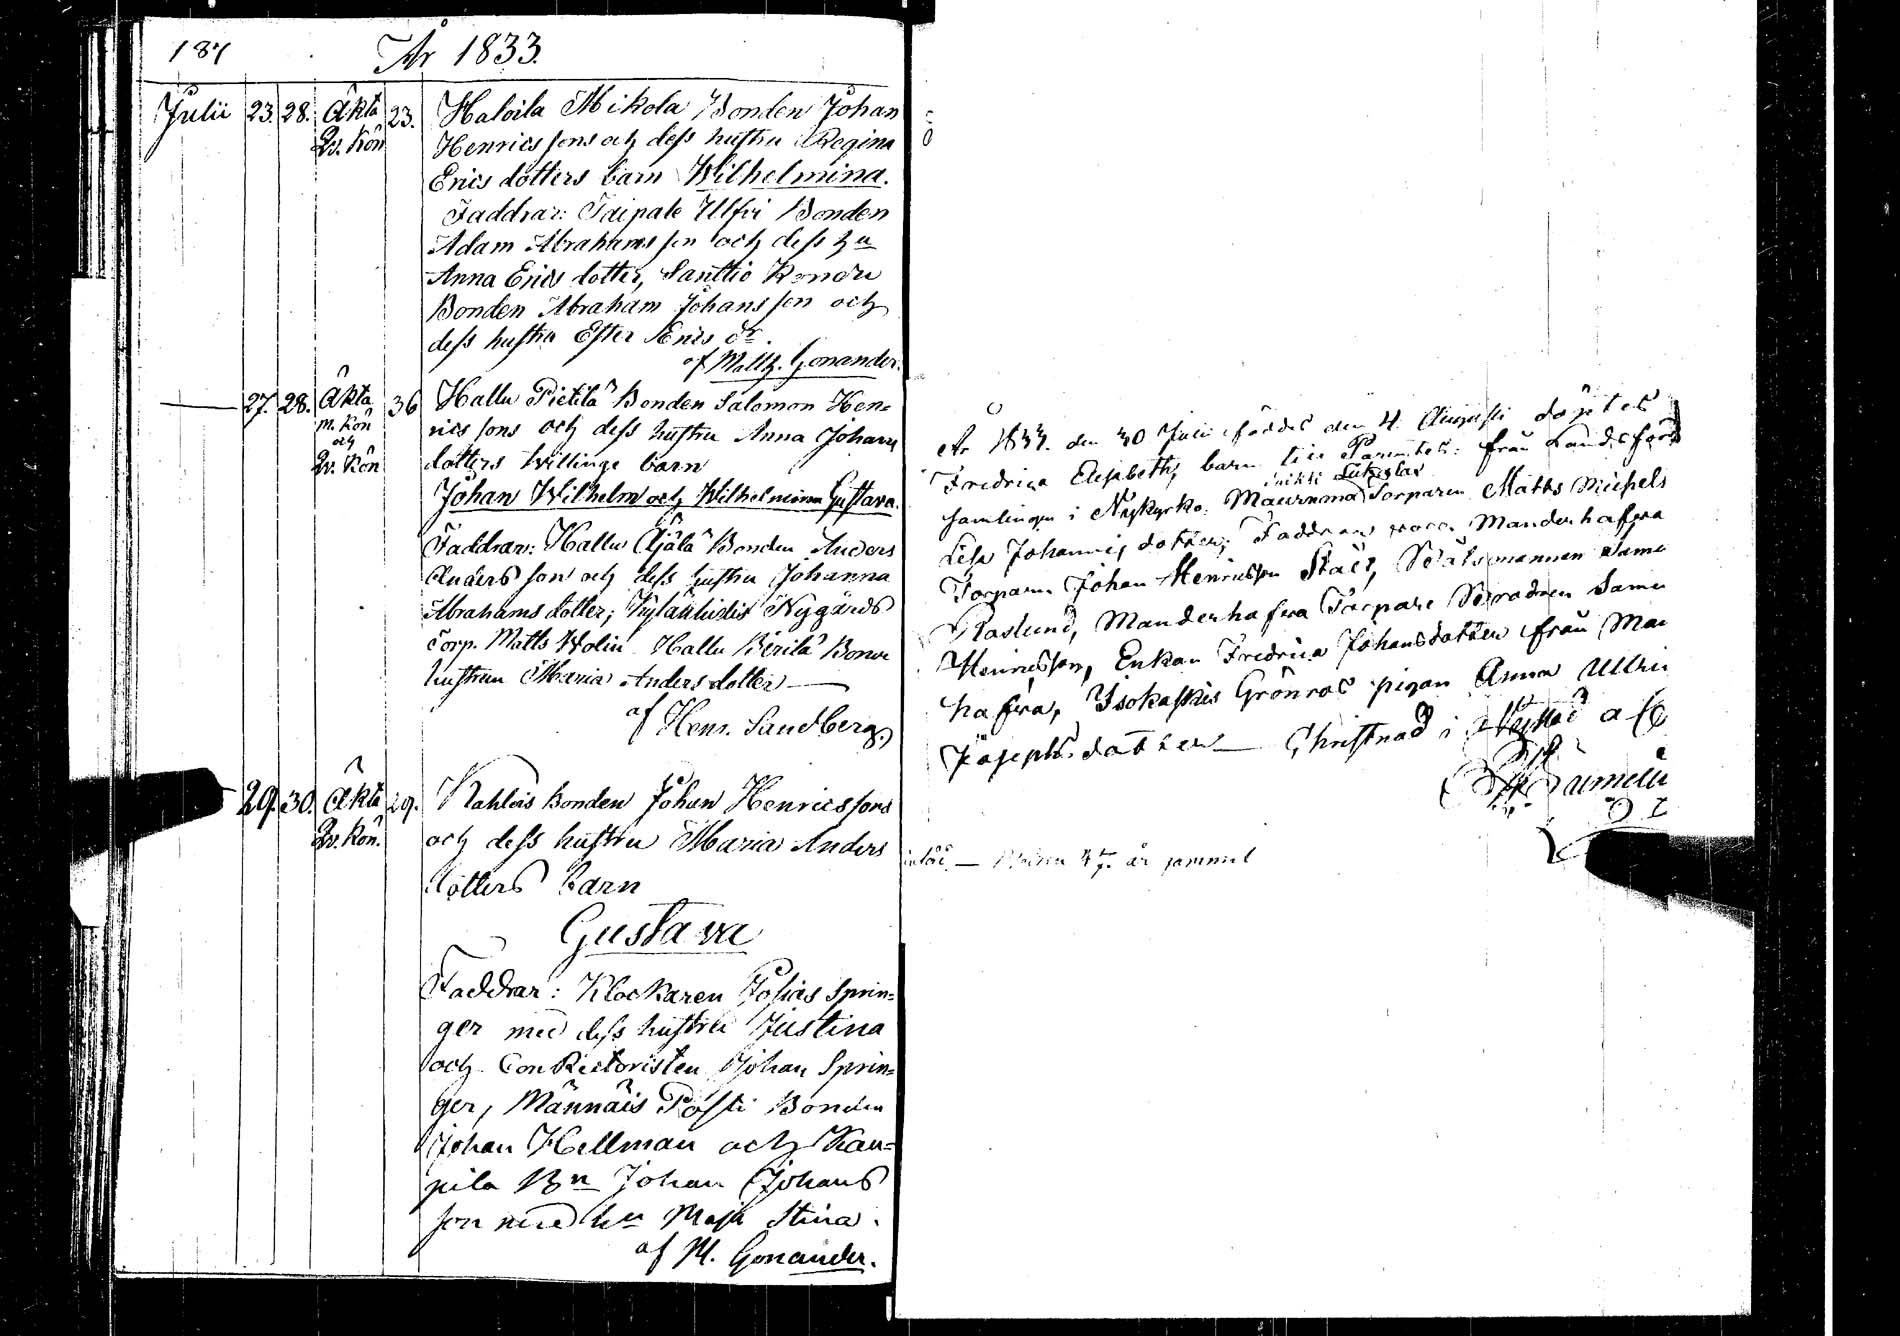 187 År 1833.
Julii 23. 28. Äkta 23. Haloila Mikola Bonden Johan
Qv. Kön Henrics sons och dess hustru Regina
Erics dotters barn Wilhelmina.
Faddrar: Taipale Ulfvi Bonden
Adam Abrahams son och dess hu
Anna Erics dotter, Santtio
Bonden Abraham Johans son och
dess hustru Ester Erics dr.
af Matth. Gonander.
27. 28. Äkta 36 Hallu Pietilä Bonden Salomon Hen=
m. Kön rics sons och dess hustru Anna Johans
och
Qv. Kön dotters twillinge barn
Johan Wilhelm och Wilhelmina Gustava.
Faddrar: Hallu Äjälä Bonden Anders
Anders son och dess hustru Johanna
Abrahams dotter; Nygårds
Torp. Matts Wolin Hallu Pirilä Bonde
hustrun Maria Anders dotter —
af Henr. Sandberg.
29. 30. Äkta 29. Kahlois Bonden Johan Henrics sons
Qv. Kön. och dess hustru Maria Anders
dotters barn
Gustava
Faddrar: Klockaren Josias Sprin=
ger med dess hustru Justina
och Con Rectoristen Johan Sprin=
ger, Männäis Påsti Bonden
Johan Hellman och Kau=
pila Bn Johan Johans
son med hu Maja Stina.
af M. Gonander.
År 1833. den 30 Julii föddes den 4. Augusti döptes
Fredrica Elisabeth, barn från Landsför
samlingen i Nykyrko. Torparen Matts Michels
Lisa Johannis dotter; Faddrar voro Manderhafwa
Torparen Johan Henricsson Ståll,
Roslund, Manderhafwa Torpare
Henricsson, Enkan Fredrica Johansdotter från Man
hafwa, Isokaskis Grönroos pigan Anna Ulrica
Josephs dotter — Christnad i Nystad af
— Modren 47. år gammal